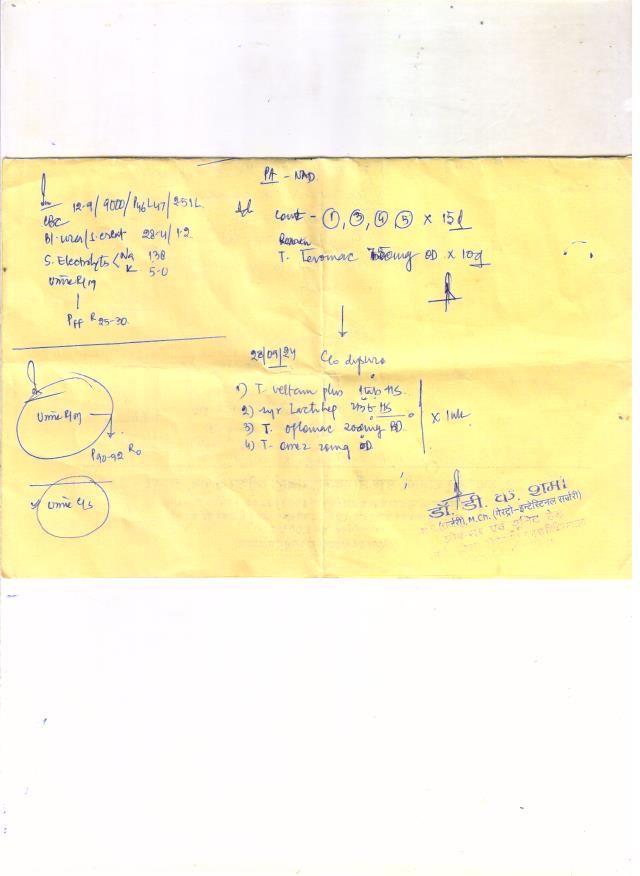 PA - NAD.
Inv 12.9/9000/P46 L47/2.51L
CBC
Bl. urea/S. creat 28.4/1.2
S. Electrolyts < Na 138
K 5.0
Urine R/M
Pff R 25-30.
Adv Cont - ①, ③, ④, ⑤ × 15d
T. Levomac 500mg OD × 10d
28/09/24 C/o dysuria
1) T. veltam plus 1tab HS.
2) syr Lactihep HS
3) T. oflomac 200mg BD.
4) T. omez 20mg OD.
× 1wk
Urine R/M
P90-92 R0
Urine C/S
डॉ. डी. के. शर्मा
(सर्जरी), M.Ch. (गैस्ट्रो-इन्टेस्टिनल सर्जरी)